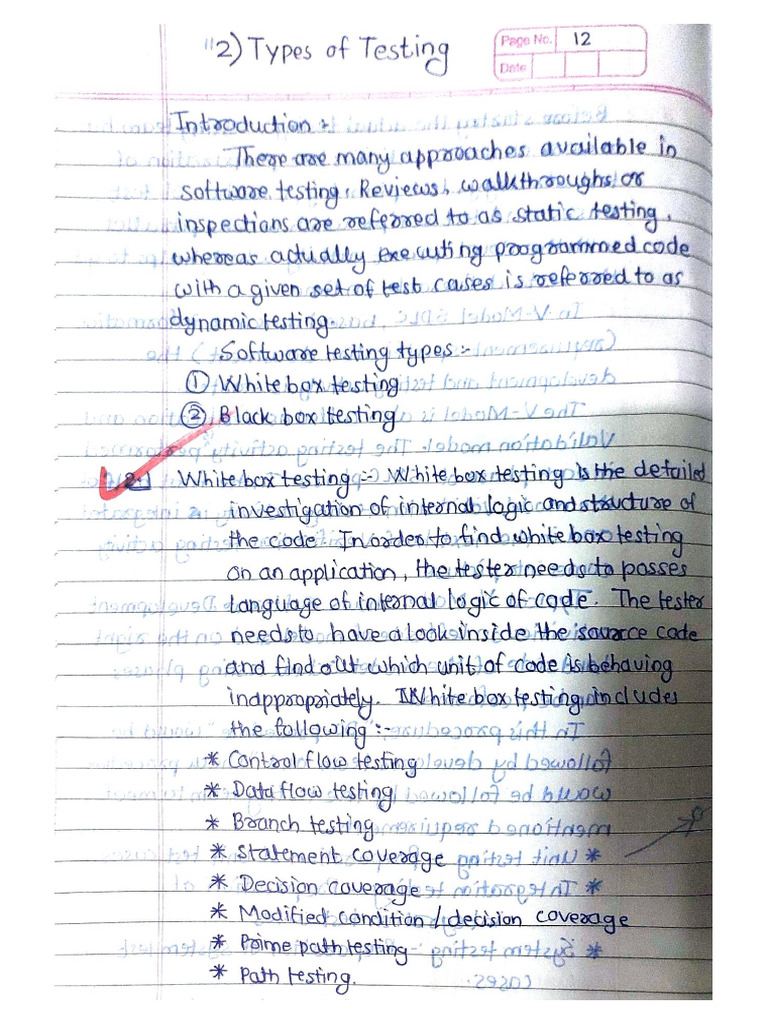 "2) Types of Testing
Page No. 12
Date
Introduction :-
There are many approaches available in
software testing. Reviews, walkthroughs or
inspections are referred to as static testing,
whereas actually executing programmed code
with a given set of test cases is referred to as
dynamic testing.
Software testing types :-
① White box testing
② Black box testing
2.1 White box testing :- White box testing is the detailed
investigation of internal logic and structure of
the code. In order to find white box testing
on an application, the tester needs to posses
language of internal logic of code. The tester
needs to have a look inside the source code
and find out which unit of code is behaving
inappropriately. White box testing includes
the following :-
* Control flow testing
* Data flow testing
* Branch testing
* Statement coverage
* Decision coverage
* Modified condition/decision coverage
* Prime path testing
* Path testing.